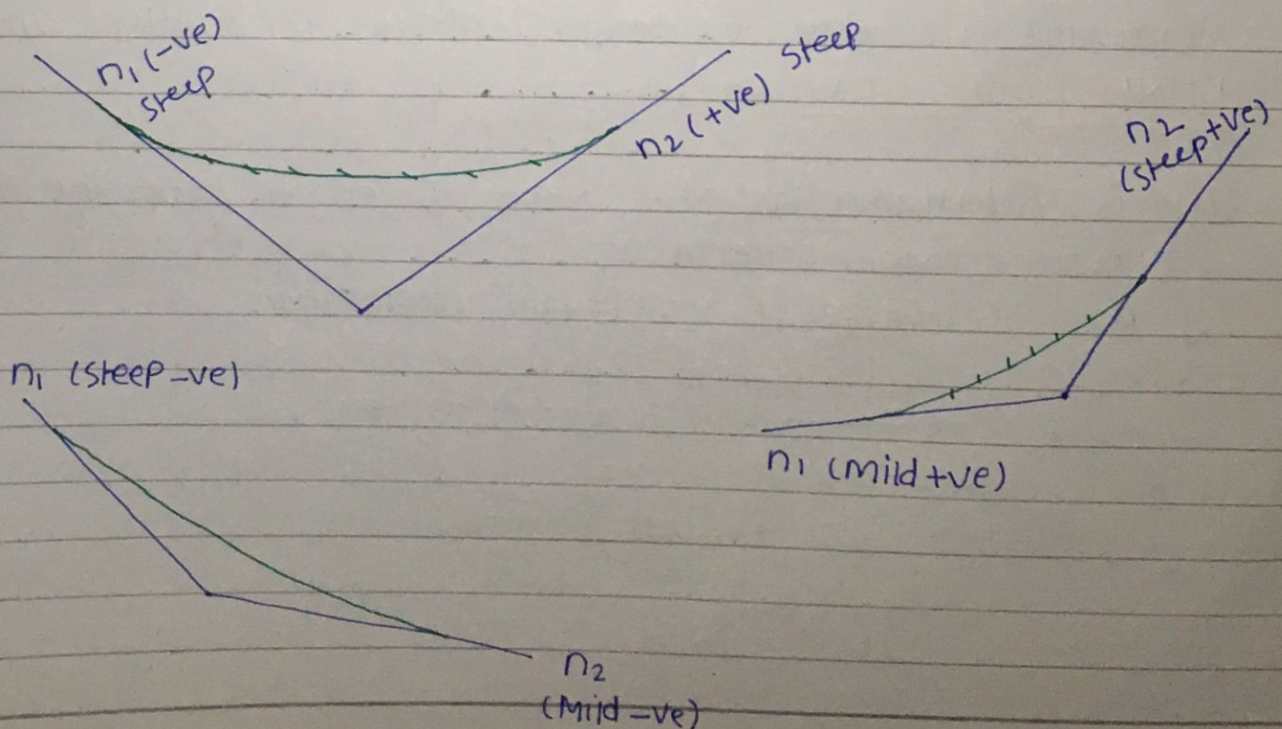 n₁ (-ve)
steep
steep
n₂ (+ve)
n₂
(steep+ve)
n₁ (steep-ve)
n₁ (Mild +ve)
n₂
(Mild -ve)